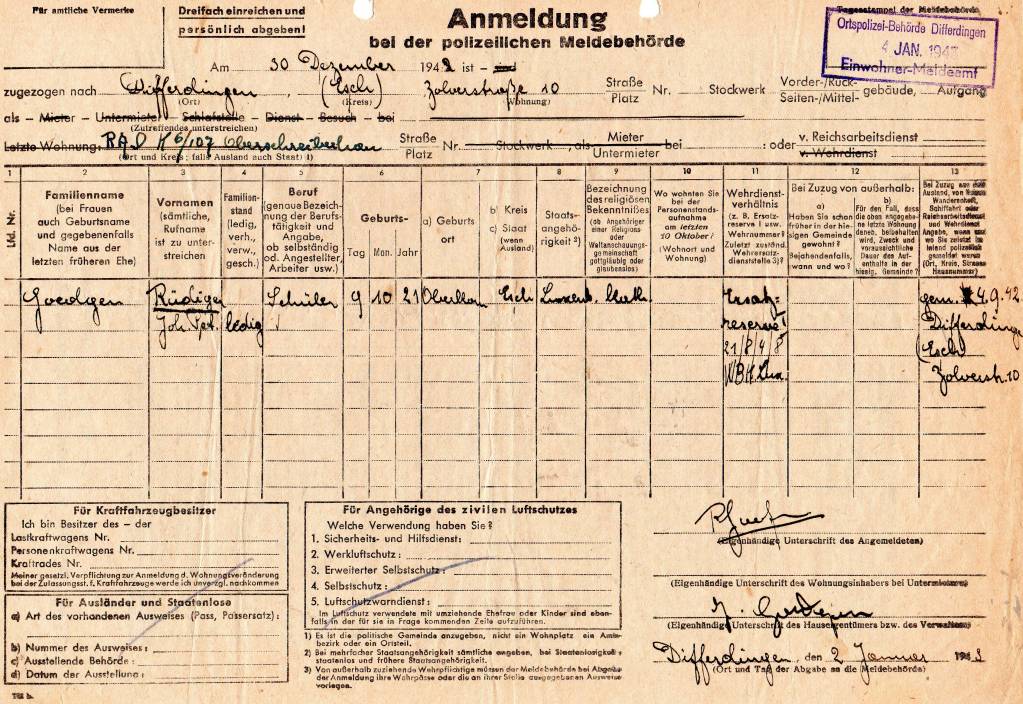 Für amtliche Vermerke
Dreifach einreichen und
persönlich abgeben!
Anmeldung
bei der polizeilichen Meldebehörde
Tagesstempel der Meldebehörde
Ortspolizei-Behörde Differdingen
4 JAN. 194
Einwohner-Meldeamt
Am 30 Dezember 1942 ist – sind
zugezogen nach Differdingen, (Esch) Zolverstraße 10 Straße Platz Nr. Stockwerk Vorder-/Rück- Seiten-/Mittel- gebäude, Aufgang
(Ort) (Kreis) (Wohnung)
als – Mieter – Untermieter – Schlafstelle – Dienst – Besuch – bei
(Zutreffendes unterstreichen)
Letzte Wohnung: RAD K 6/107 Oberschreiberhau Straße Platz Nr. Stockwerk, als Mieter Untermieter bei : oder v. Reichsarbeitsdienst v. Wehrdienst
(Ort und Kreis; falls Ausland auch Staat) 1)
1 2 3 4 5 6 7 8 9 10 11 12 13
Lfd. Nr.
Familienname
(bei Frauen
auch Geburtsname
und gegebenenfalls
Name aus der
letzten früheren Ehe)
Vornamen
(sämtliche,
Rufname
ist zu unter-
streichen)
Familien-
stand
(ledig,
verh.,
verw.,
gesch.)
Beruf
(genaue Bezeich-
nung der Berufs-
tätigkeit und
Angabe,
ob selbständig
od. Angestellter,
Arbeiter usw.)
Geburts-
Tag Mon. Jahr
a) Geburts
ort
b) Kreis
c) Staat
(wenn
Ausland)
Staats-
angehö-
rigkeit 2)
Bezeichnung
des religiösen
Bekenntnisses
(ob Angehöriger
einer Religions
oder
Weltanschauungs-
gemeinschaft
gottgläubig oder
glaubenslos)
Wo wohnten Sie
bei der
Personenstands-
aufnahme
am letzten
10 Oktober?
(Wohnort und
Wohnung)
Wehrdienst-
verhältnis
(z. B. Ersatz-
reserve I usw.
Wehrnummer?
Zuletzt zuständ.
Wehrersatz-
dienststelle 3)?
Bei Zuzug von außerhalb:
a)
Haben Sie schon
früher in der hie-
sigen Gemeinde
gewohnt?
Bejahendenfalls,
wann und wo?
b)
Für den Fall, dass
die oben angegebe-
ne letzte Wohnung
denen, beibehalten
wird, Zweck und
voraussichtliche
Dauer des Auf-
enthalts in der
hiesig. Gemeinde?
Goedgen Rüdiger Schüler 9 10 21 Oberkorn Esch Luxenb. kath. Ersatz= gem. 4.9.42
Joh. Pet. ledig reserve I Differdinge
21/8/4/8 (Esch
WBK Lux. Zolverstr. 10
Für Kraftfahrzeugbesitzer
Ich bin Besitzer des – der
Lastkraftwagens Nr.
Personenkraftwagens Nr.
Kraftrades Nr.
Meiner gesetzl. Verpflichtung zur Anmeldung d. Wohnungsveränderung
bei der Zulassungsst. f. Kraftfahrzeuge werde ich unverzgl. nachkommen
Für Ausländer und Staatenlose
a) Art des vorhandenen Ausweises (Pass, Passersatz):
b) Nummer des Ausweises:
c) Ausstellende Behörde:
d) Datum der Ausstellung:
Für Angehörige des zivilen Luftschutzes
Welche Verwendung haben Sie?
1. Sicherheits- und Hilfsdienst:
2. Werkluftschutz:
3. Erweiterter Selbstschutz:
4. Selbstschutz:
5. Luftschutzwarndienst:
Im Luftschutz verwendete mit umziehende Ehefrau oder Kinder sind eben-
falls in der für sie in Frage kommenden Zeile aufzuführen.
1) Es ist die politische Gemeinde anzugeben, nicht ein Wohnplatz ein Amts-
bezirk oder ein Ortsteil.
2) Bei mehrfacher Staatsangehörigkeit sämtliche angeben, bei Staatenlosigkeit:
staatenlos und frühere Staatsangehörigkeit.
3) Von außerhalb zuziehende Wehrpflichtige müssen der Meldebehörde bei Abgabe
der Anmeldung ihre Wehrpässe oder die an ihrer Stelle ausgegebenen Ausweise
vorlegen.
(Eigenhändige Unterschrift des Angemeldeten)
(Eigenhändige Unterschrift des Wohnungsinhabers bei Untermietern)
J. Goedgen
(Eigenhändige Unterschrift des Hauseigentümers bzw. des Verwalters)
Differdingen, den 2 Januar 1943
(Ort und Tag der Abgabe an die Meldebehörde)